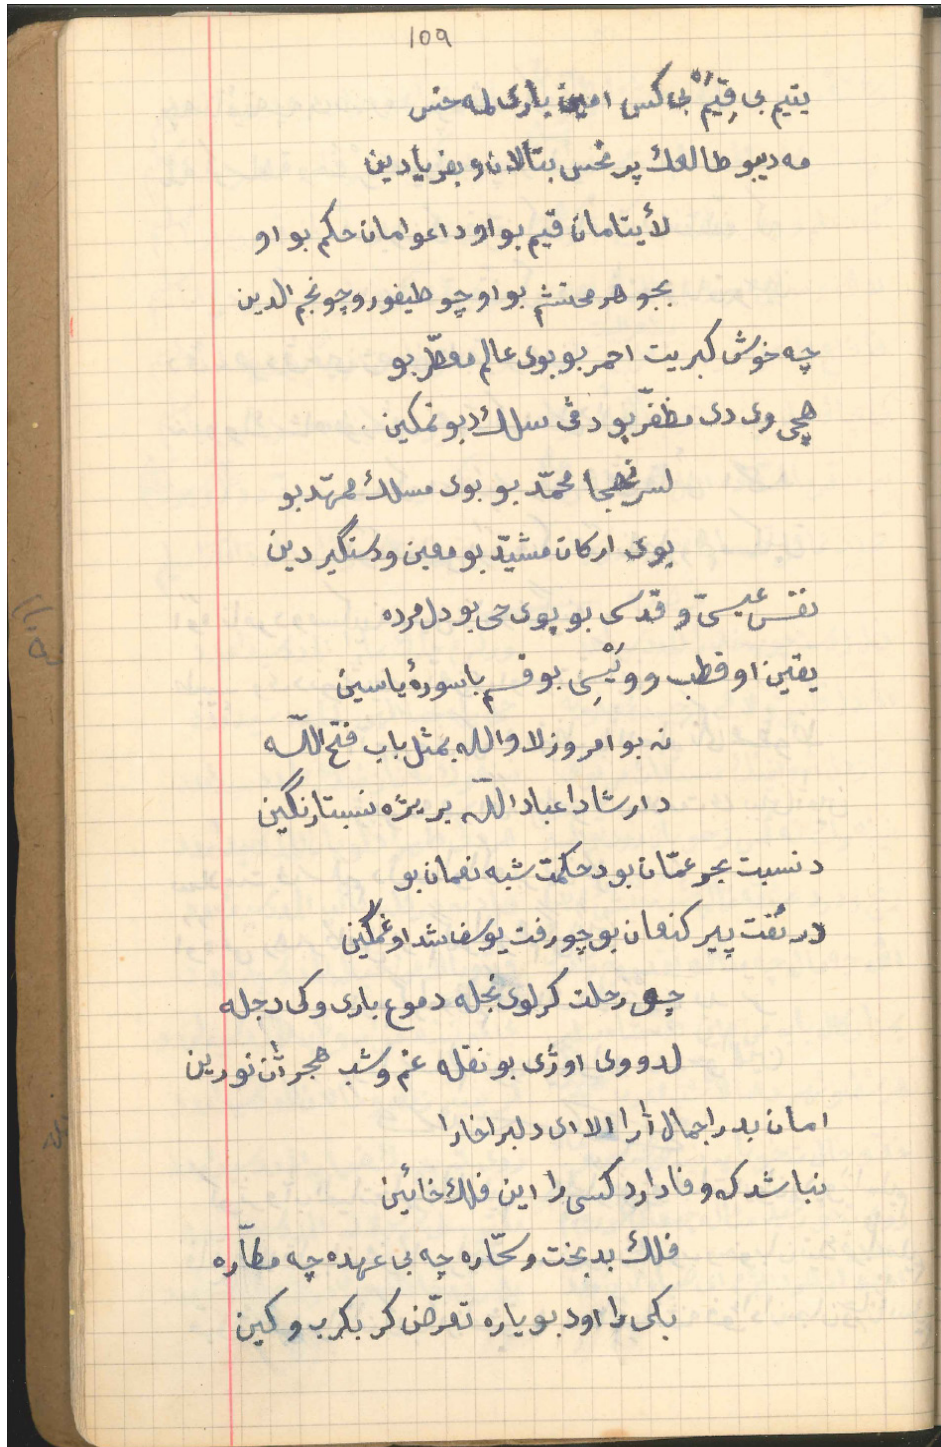 ١٥٩
يتيم بى قِيَمْ بى كس امين يارى لمه حنس
مه ديبو طالعك پر نحس بتألان و بفريادين
لأيتامان قيم بو او د اعوامان حكم بو او
بجوهر محتشم بو او چو طيفور و چو نجم الدين
چه خوش كبريت احمر بو بوى عالم معطّر بو
هچى وى دى مظفّر بو د فى سلك دبو نمكين
لسر نهجا محمّد بو بوى مسلك ممهّد بو
بوى اركان مشيّد بو معين و دستگير دين
نفس عيسىّ و قدسى بو بوى حى بو دل مرده
يقين او قطب و وَيْسِى بو قسم باسورهٔ ياسين
نه بو امروز لا والله بمثل باب فتح اللّه
د ارشادا عباد اللّه بريژه نسبتا رنگين
د نسبت بحر عمّان بو د حكمت شبه نعمان بو
در ئفت پير كنعان بو چو رفت يوسف شد او غمگين
چو رحلت كر لوى نجله دموع بارى وكى دجله
لدو وى اوژى بو نقله غم و شب هجر أن نورين
امان بدرا جمال أرا الا اى دلبرا خارا
نباشد كه وفا دارد كسى را اين فلك خائين
فلك بدبخت و سحّاره چه بى عهده چه مطّاره
بكى را او دبو ياره تعرّض كر بكرب و كين